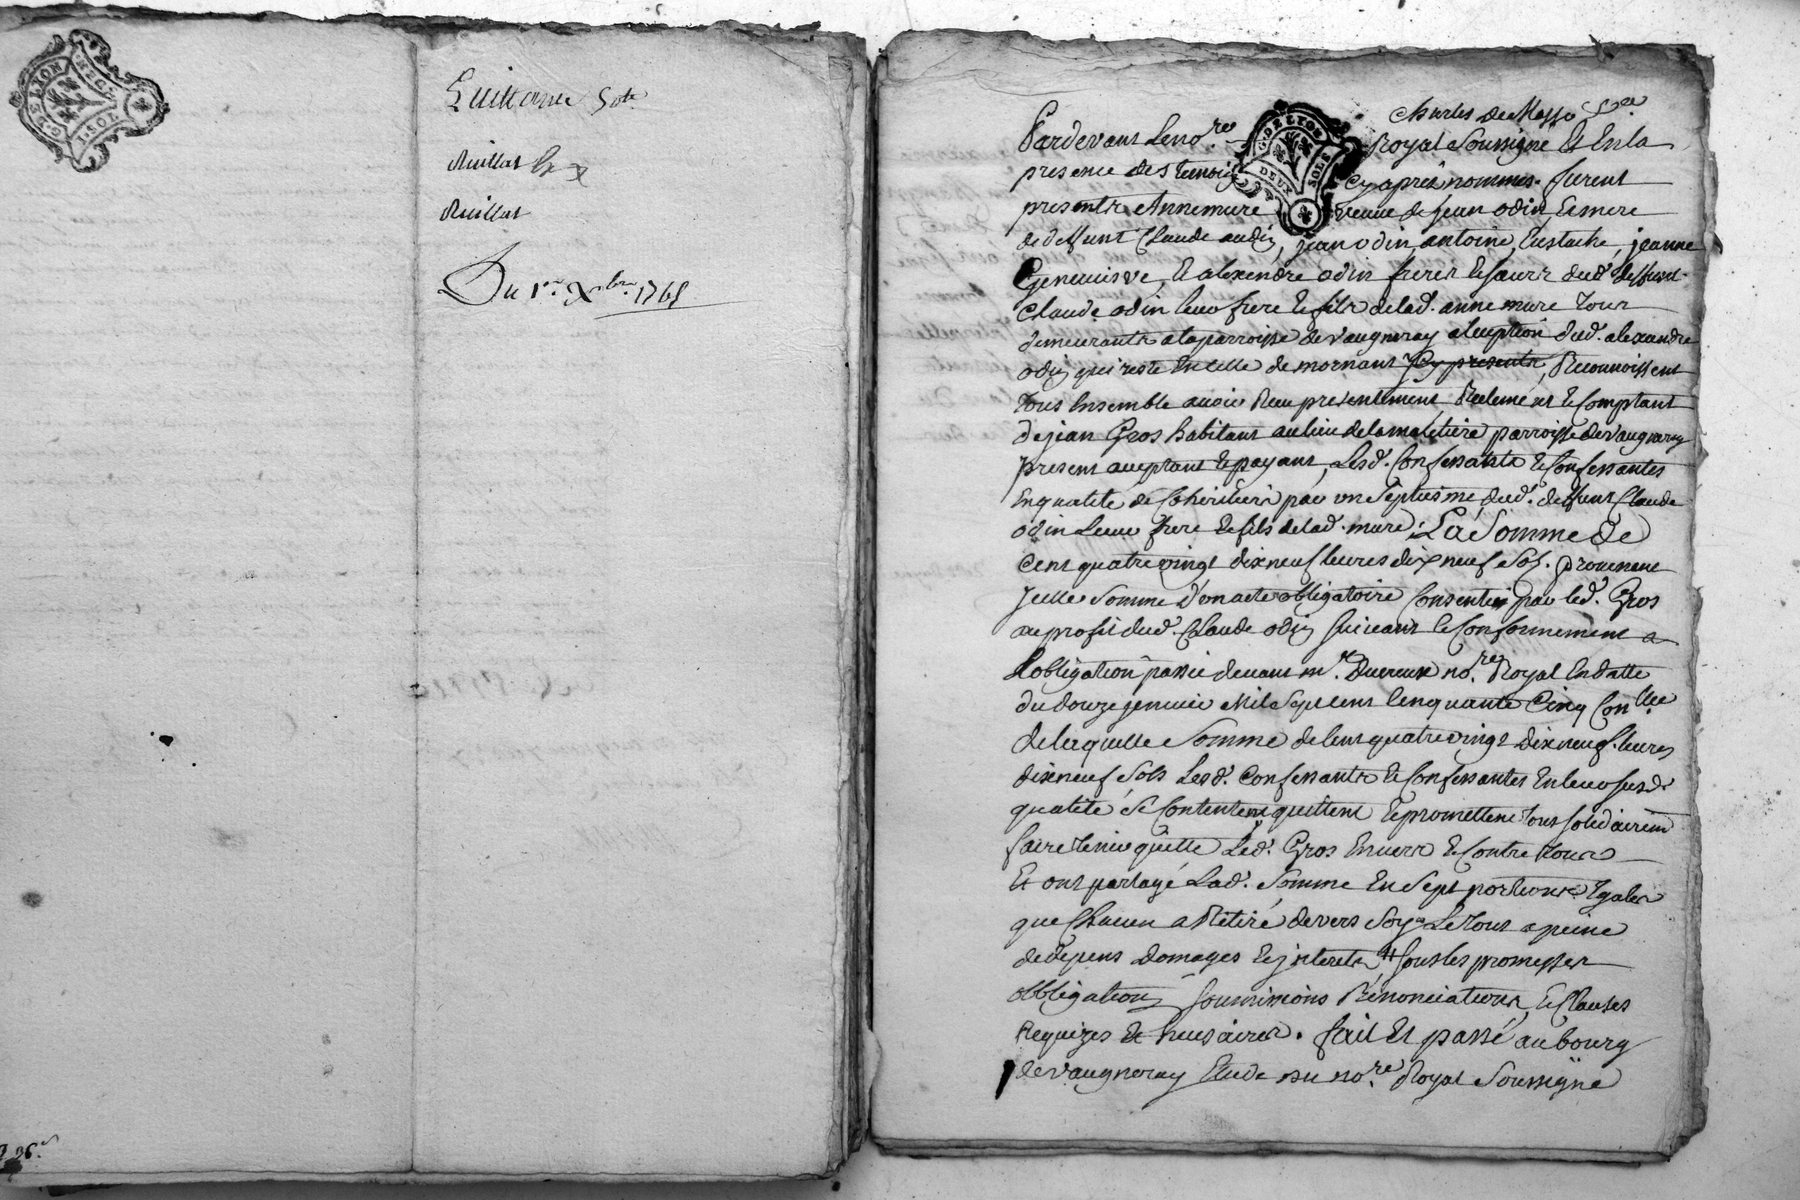 G. DE LYON
1. SOL
Quittance
Du 1er Xbre 1765
G. DE LYON
DEUX SOLS
Charles de
Pardevant le nore Royal Soussigné Et En la
presence des temoins Cy apres nommés. furent
presents Anne mure veuve de jean odin Et mere
de deffunt Claude odin, jean odin, antoine, Eustache, jeanne
Genevieve, Et alexendre odin freres Et soeurs dud. deffunt
Claude odin leur frere Et fils de lad. anne mure Tous
demeurants a la parroisse de vaugneray a l'exception dud. alexandre
odin qui reste En celle de mornant Cy presents, Reconnoissent
Tous Ensemble avoir Reçu presentement Réelement Et Comptant
de jean Gros habitant au lieu de la maletiere parroisse de vaugneray
present acceptant Et payant, Lesd. Confessants Et Confessantes
En qualité de Cohéritiers par un Septiesme dud. deffunt Claude
odin Leur frere Et fils de lad. mure; La Somme de
Cent quatre vingt dix neuf livres dix neuf Sols. provenant
jcelle Somme d'un acte obligatoire Consentie par led. Gros
au profit dud. Claude odin suivant Et Conformement a
L'obligation passée devant mr. Duvreux nore. Royal En datte
du douze jenvier Mil Sept cent Cinquante Cinq Conllée
de laquelle Somme de Cent quatre vingt dix neuf livres
dix neuf Sols Lesd. Confessants Et Confessantes En leur susd.
qualité Se Contentent quittent Et promettent Tous solidairemt
faire tenir quitte Led. Gros Envers Et Contre tous
Et ont partagé Lad. Somme En Sept portions Egales
que Chacun a Retiré devers Soy. Le tout a peine
de depens Domages Et jnterets sous les promesses
obligations soumissions Renonciations, Et Clauses
Requizes Et necesaires. fait Et passé au bourg
de vaugneray Etude du nore. Royal Soussigné